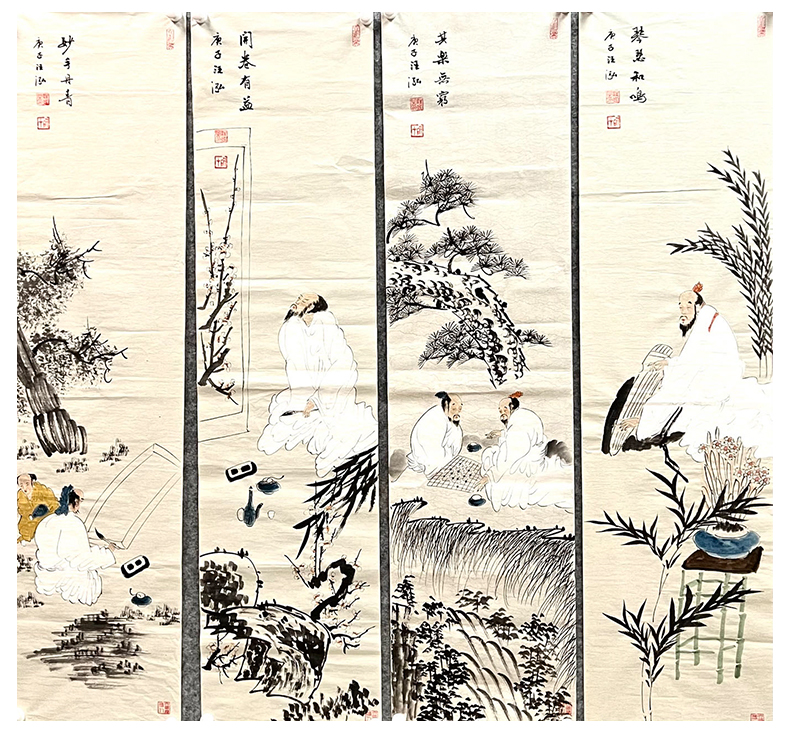 琴瑟和鳴
庚子汪泓
其樂無窮
庚子汪泓
開卷有益
庚子汪泓
妙手丹青
庚子汪泓